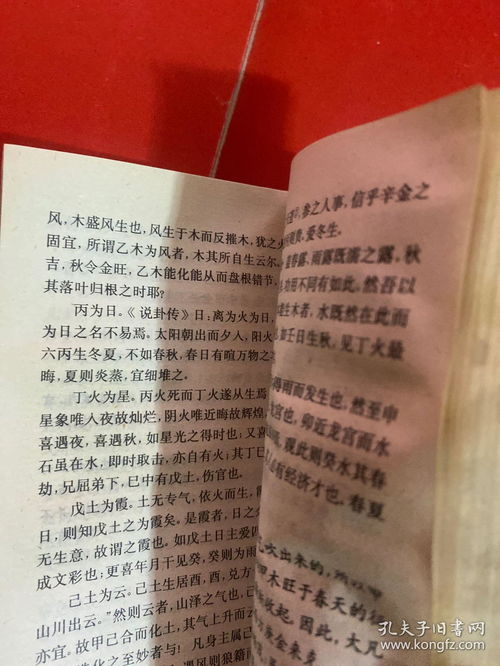 风，木盛风生也，风生于木而反摧木，犹之火
固宜，所谓乙木为风者，木其所自生云尔。
吉，秋令金旺，乙木能化能从而盘根错节，
其落叶归根之时耶？
丙为日。《说卦传》曰：离为火为日，
为日之名不易焉。太阳朝出而夕入，阳火
六丙生冬夏，不如春秋，春日有暄万物之
晦，夏则炎蒸，宜细堆之。
丁火为星。丙火死而丁火遂从生焉
星象唯入夜故灿烂，阴火唯近晦故辉煌
喜遇夜，喜遇秋，如星光之得时也，又喜
石虽在水，即时取击，亦自有火；其丁巳
劫，兄屈弟下，巳中有戊土，伤官也。
戊土为霞。土无专气，依火而生，
日，则知戊土之为霞矣。是霞者，日之
无生意，故谓之霞也。如戊土日主爱四
成文彩也；更喜年月干见癸，癸则为雨
己土为云。己土生居酉，酉，兑方
山川出云。”然则云者，山泽之气也，己
亦宜。故甲己合而化土，其气上升而
化之至妙者与！凡身主属己
遇风则狼籍
参之人事，信乎辛金之
爱冬生。
春露，雨露既濡之露，秋
功用不同有如此。然吾以
生木者，水既然在此而
如壬日生秋，见丁火最
雨而发生也，然至申
宫也，卯近龙宫而水
观此则癸水其春
有经济才也。春夏
吹出来的，
木旺于春天的
收起。因此，大凡
孔夫子旧书网
www.kongfz.com